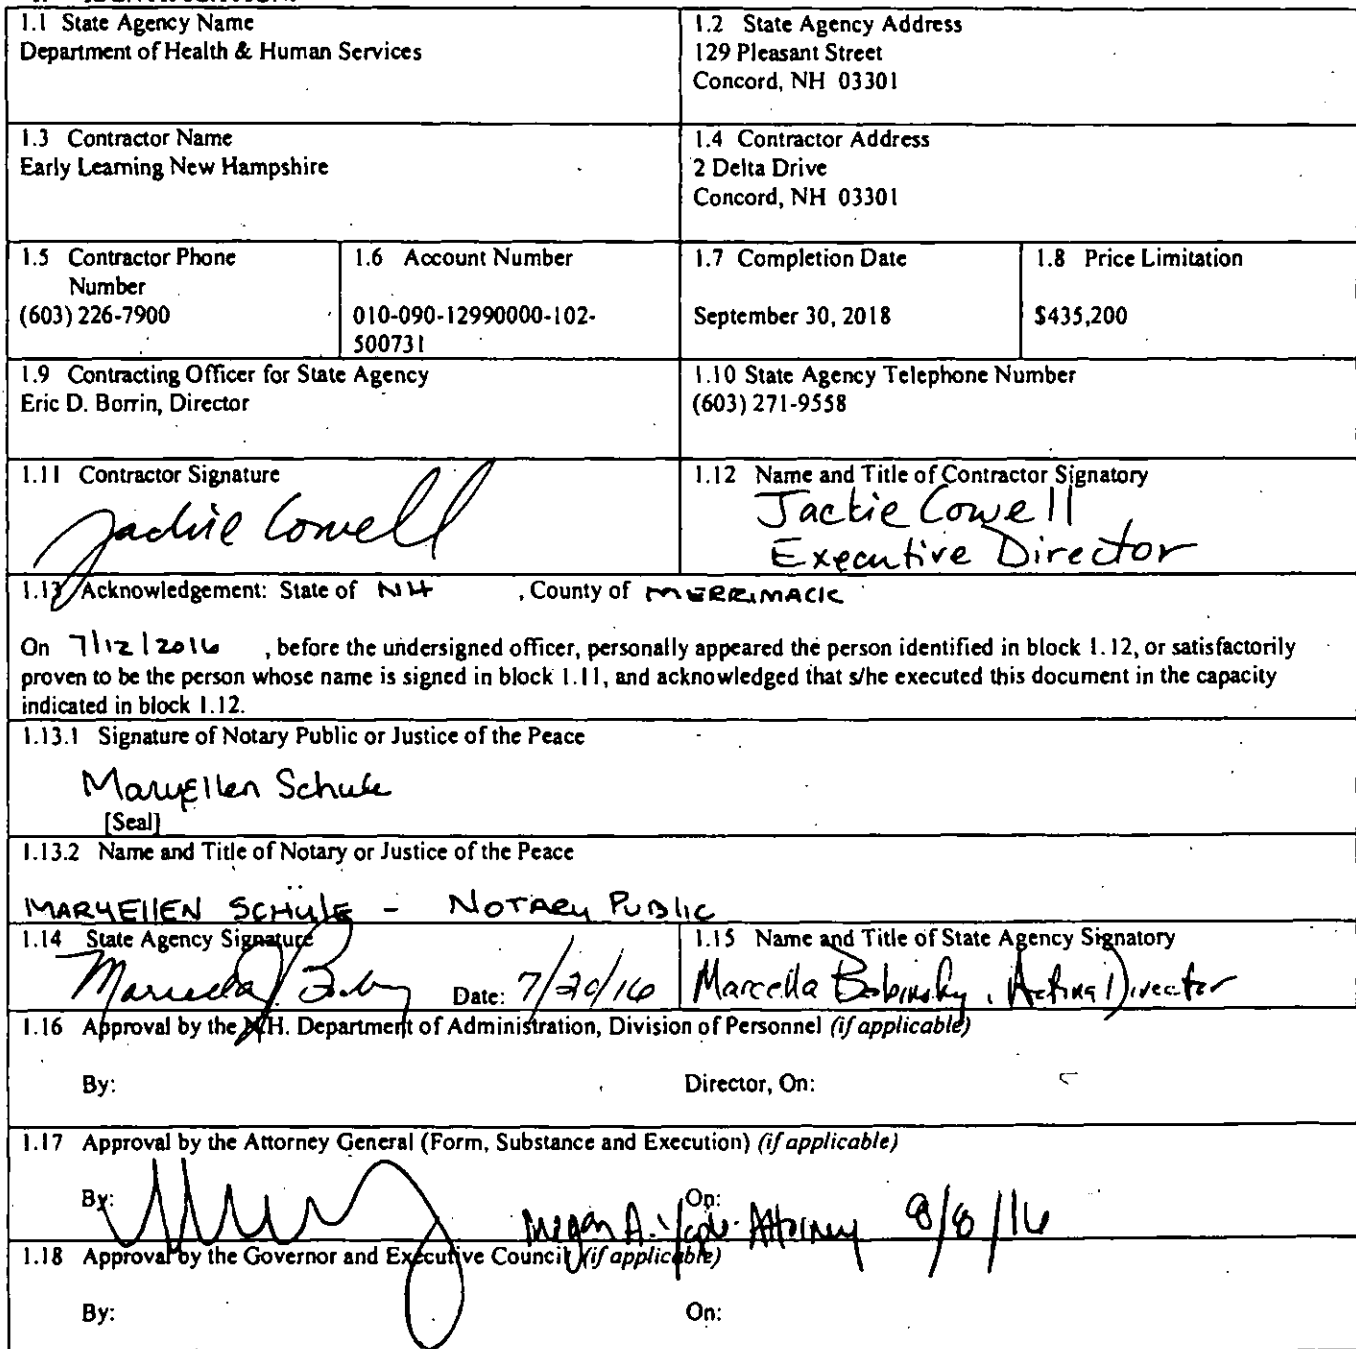 1.1 State Agency Name
Department of Health & Human Services
1.2 State Agency Address
129 Pleasant Street
Concord, NH 03301
1.3 Contractor Name
Early Learning New Hampshire
1.4 Contractor Address
2 Delta Drive
Concord, NH 03301
1.5 Contractor Phone
Number
(603) 226-7900
1.6 Account Number
010-090-12990000-102-
500731
1.7 Completion Date
September 30, 2018
1.8 Price Limitation
$435,200
1.9 Contracting Officer for State Agency
Eric D. Borrin, Director
1.10 State Agency Telephone Number
(603) 271-9558
1.11 Contractor Signature
Jackie Cowell
1.12 Name and Title of Contractor Signatory
Jackie Cowell
Executive Director
1.13 Acknowledgement: State of NH , County of MERRIMACK
On 7/12/2016 , before the undersigned officer, personally appeared the person identified in block 1.12, or satisfactorily
proven to be the person whose name is signed in block 1.11, and acknowledged that s/he executed this document in the capacity
indicated in block 1.12.
1.13.1 Signature of Notary Public or Justice of the Peace
MaryEllen Schule
[Seal]
1.13.2 Name and Title of Notary or Justice of the Peace
MARYEllEN SCHULE - NOTARY PUBLIC
1.14 State Agency Signature
Date: 7/20/16
1.15 Name and Title of State Agency Signatory
Marcella Bobinsky, Acting Director
1.16 Approval by the N.H. Department of Administration, Division of Personnel (if applicable)
By:
Director, On:
1.17 Approval by the Attorney General (Form, Substance and Execution) (if applicable)
By:
On:
Megan A. Attorney 8/8/16
1.18 Approval by the Governor and Executive Council (if applicable)
By:
On: